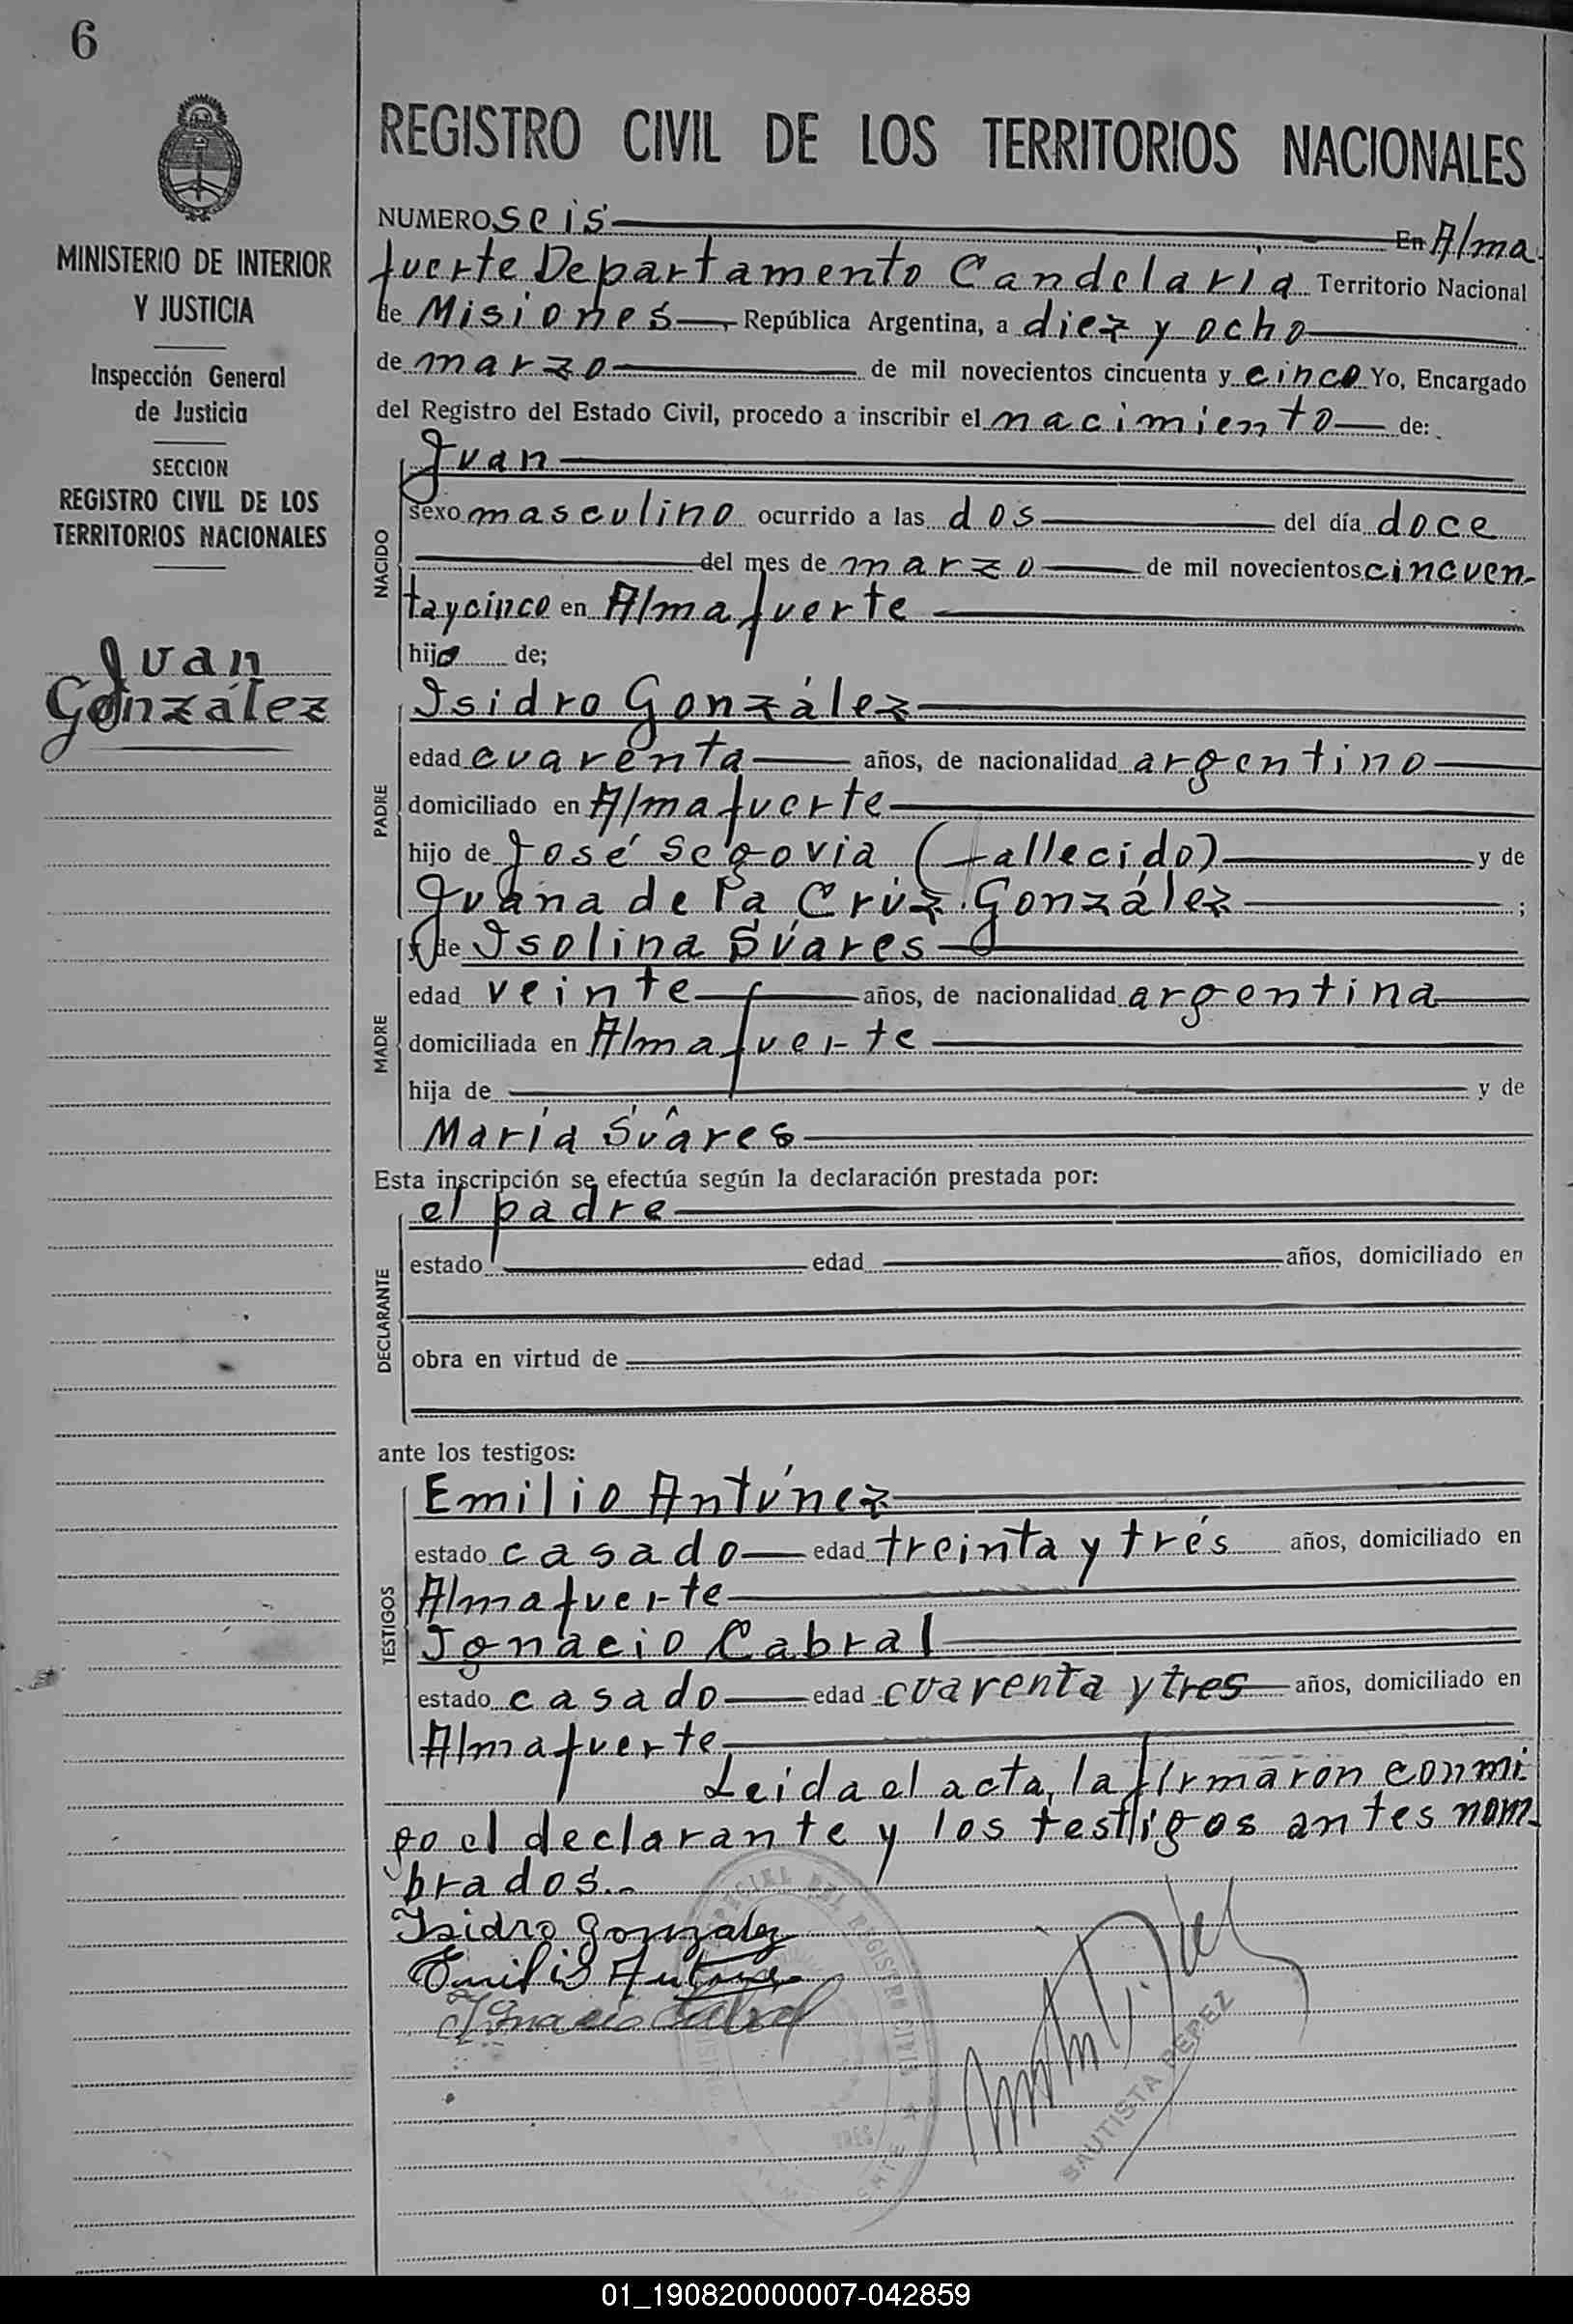 6
MINISTERIO DE INTERIOR
Y JUSTICIA
Inspección General
de Justicia
SECCION
REGISTRO CIVIL DE LOS
TERRITORIOS NACIONALES
Juan
González
REGISTRO CIVIL DE LOS TERRITORIOS NACIONALES
NUMERO seis En Alma
fuerte Departamento Candelaria Territorio Nacional
de Misiones República Argentina, a diez y ocho
de marzo de mil novecientos cincuenta y cinco Yo, Encargado
del Registro del Estado Civil, procedo a inscribir el nacimiento de:
NACIDO
Juan
sexo masculino ocurrido a las dos del día doce
del mes de marzo de mil novecientos cincuen-
taycinco en Almafuerte
hijo de;
PADRE
Isidro González
edad cuarenta años, de nacionalidad argentino
domiciliado en Almafuerte
hijo de José Segovia (fallecido) y de
Juana de la Cruz González ;
MADRE
y de Isolina Suares
edad veinte años, de nacionalidad argentina
domiciliada en Almafuerte
hija de y de
María Suares
Esta inscripción se efectúa según la declaración prestada por:
DECLARANTE
el padre
estado edad años, domiciliado en
obra en virtud de
ante los testigos:
TESTIGOS
Emilio Antúnez
estado casado edad treinta y trés años, domiciliado en
Almafuerte
Ignacio Cabral
estado casado edad cuarenta y tres años, domiciliado en
Almafuerte
Leida el acta, la firmaron conmi
go el declarante y los testigos antes nom-
brados.-
Isidro Gonzalez
Emilio Antunez
Ignacio Cabral
BAUTISTA PEPEZ
01_190820000007-042859